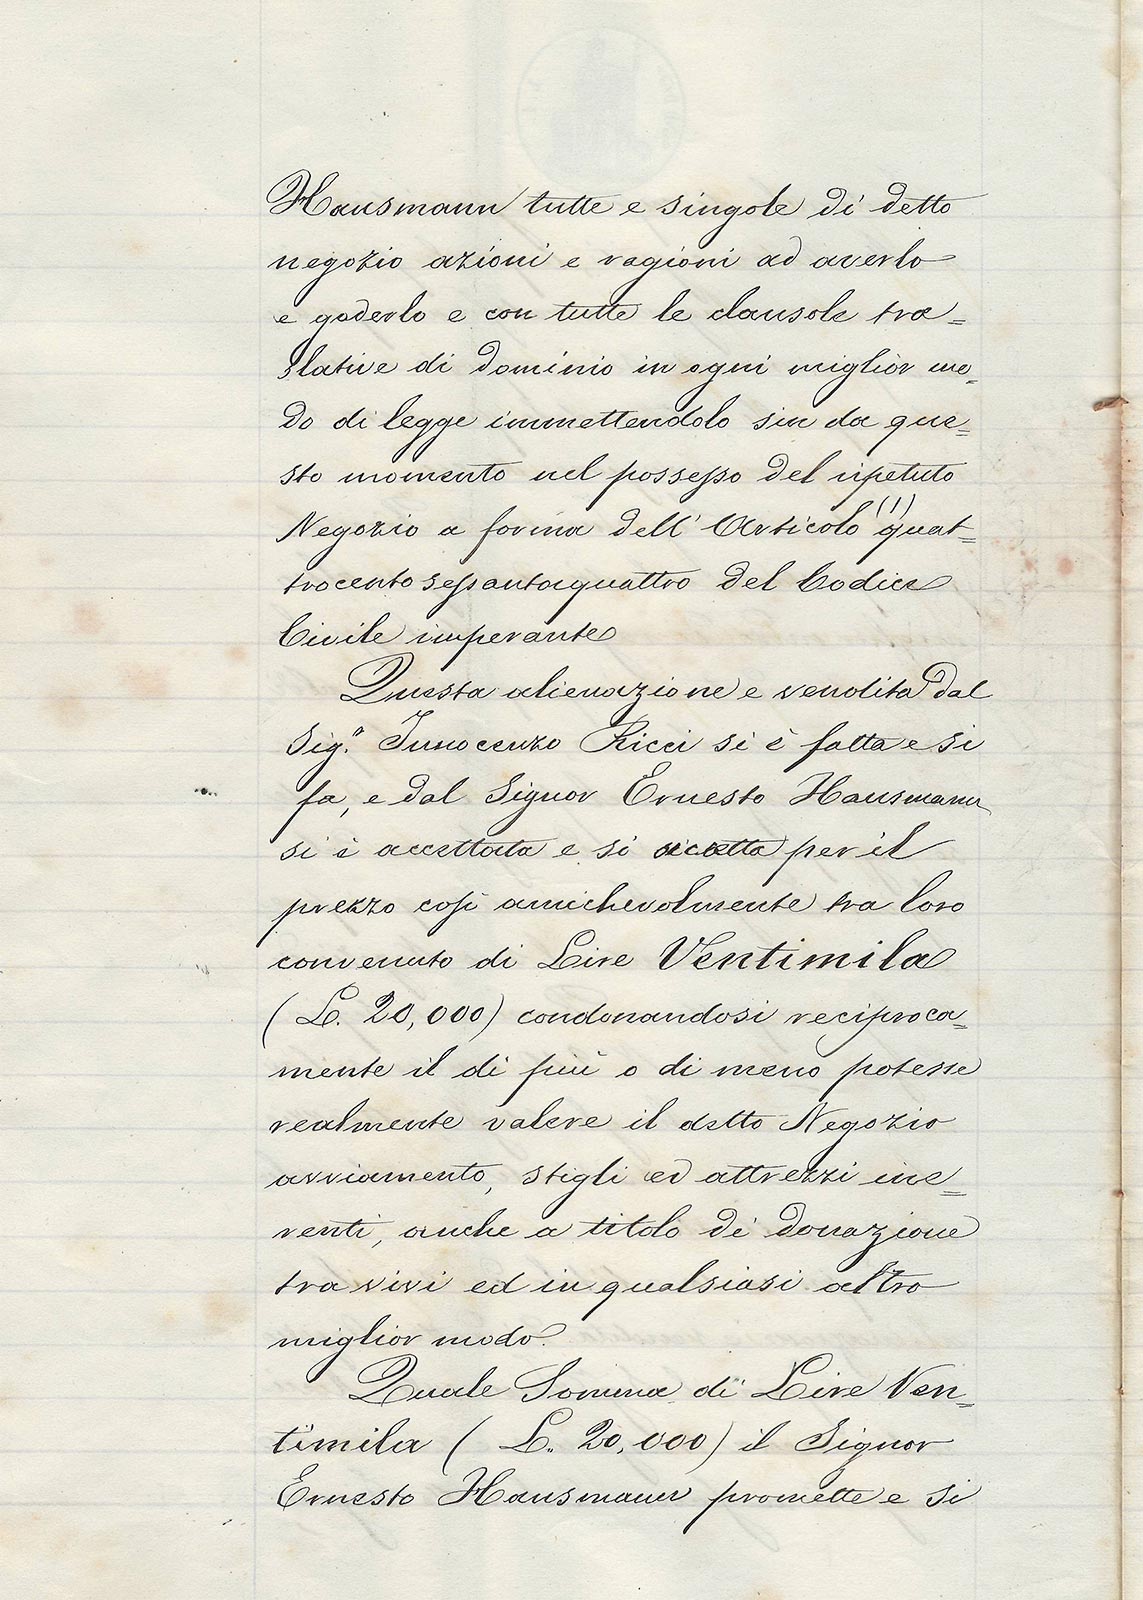 Hausmann tutte e singole di detto
negozio azioni e ragioni ad averlo
e goderlo e con tutte le clausole tra=
slative di dominio in ogni miglior mo=
do di legge immettendolo sin da que=
sto momento nel possesso del ripetuto
Negozio a forma dell' Articolo (1) quat=
trocento sessantaquattro del Codice
Civile imperante
Questa alienazione e vendita dal
Sig.r Innocenzo Ricci si è fatta e si
fa, e dal Signor Ernesto Hausmann
si è accettata e si accetta per il
prezzo così amichevolmente tra loro
convenuto di Lire Ventimila
(L. 20,000) condonandosi reciproca=
mente il di più o di meno potesse
realmente valere il detto Negozio
avviamento, stigli ed attrezzi ine=
renti, anche a titolo di donazione
tra vivi ed in qualsiasi altro
miglior modo.
Quale Somma di Lire Ven=
timila (L. 20,000) il Signor
Ernesto Hausmann promette e si